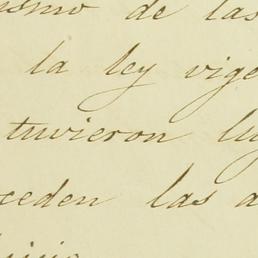 ismo de las
la ley vige
tuvieron lu
ceden las a